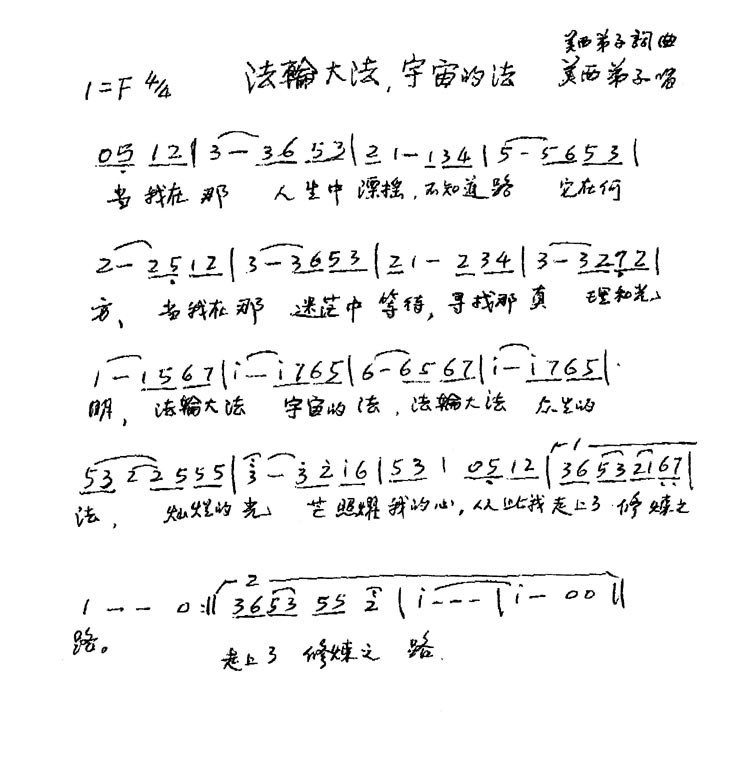 美西弟子詞曲
1=F 4/4 法輪大法,宇宙的法 美西弟子唱
05 12|3-36 53|21-134|5-5653|
当我在那 人生中漂摇,不知道路 它在何
2-2512|3-3653|21-234|3-3272|
方、当我在那 迷茫中等待,寻找那真 理和光
1-1567|i-i765|6-6567|i-i765|
明,法輪大法 宇宙的法,法輪大法 众生的
53 22555|3-32i6|531 05 12|1 36532167|
法,灿烂的光 芒照耀我的心,从此我走上了修炼之
1--0:‖2 3653 55 2|i---|i-00‖
路。 走上了 修炼之 路.